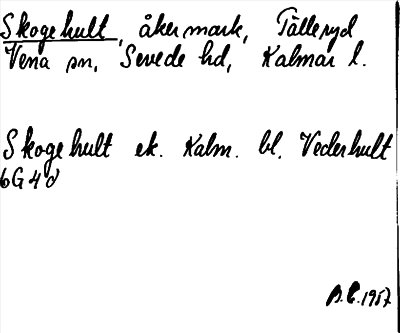 Skogehult, åkermark, Tålleryd
Vena sn, Sevede hd, Kalmar l.
Skogehult ek. Kalm. bl. Vederhult
6G4d
B.E. 1957